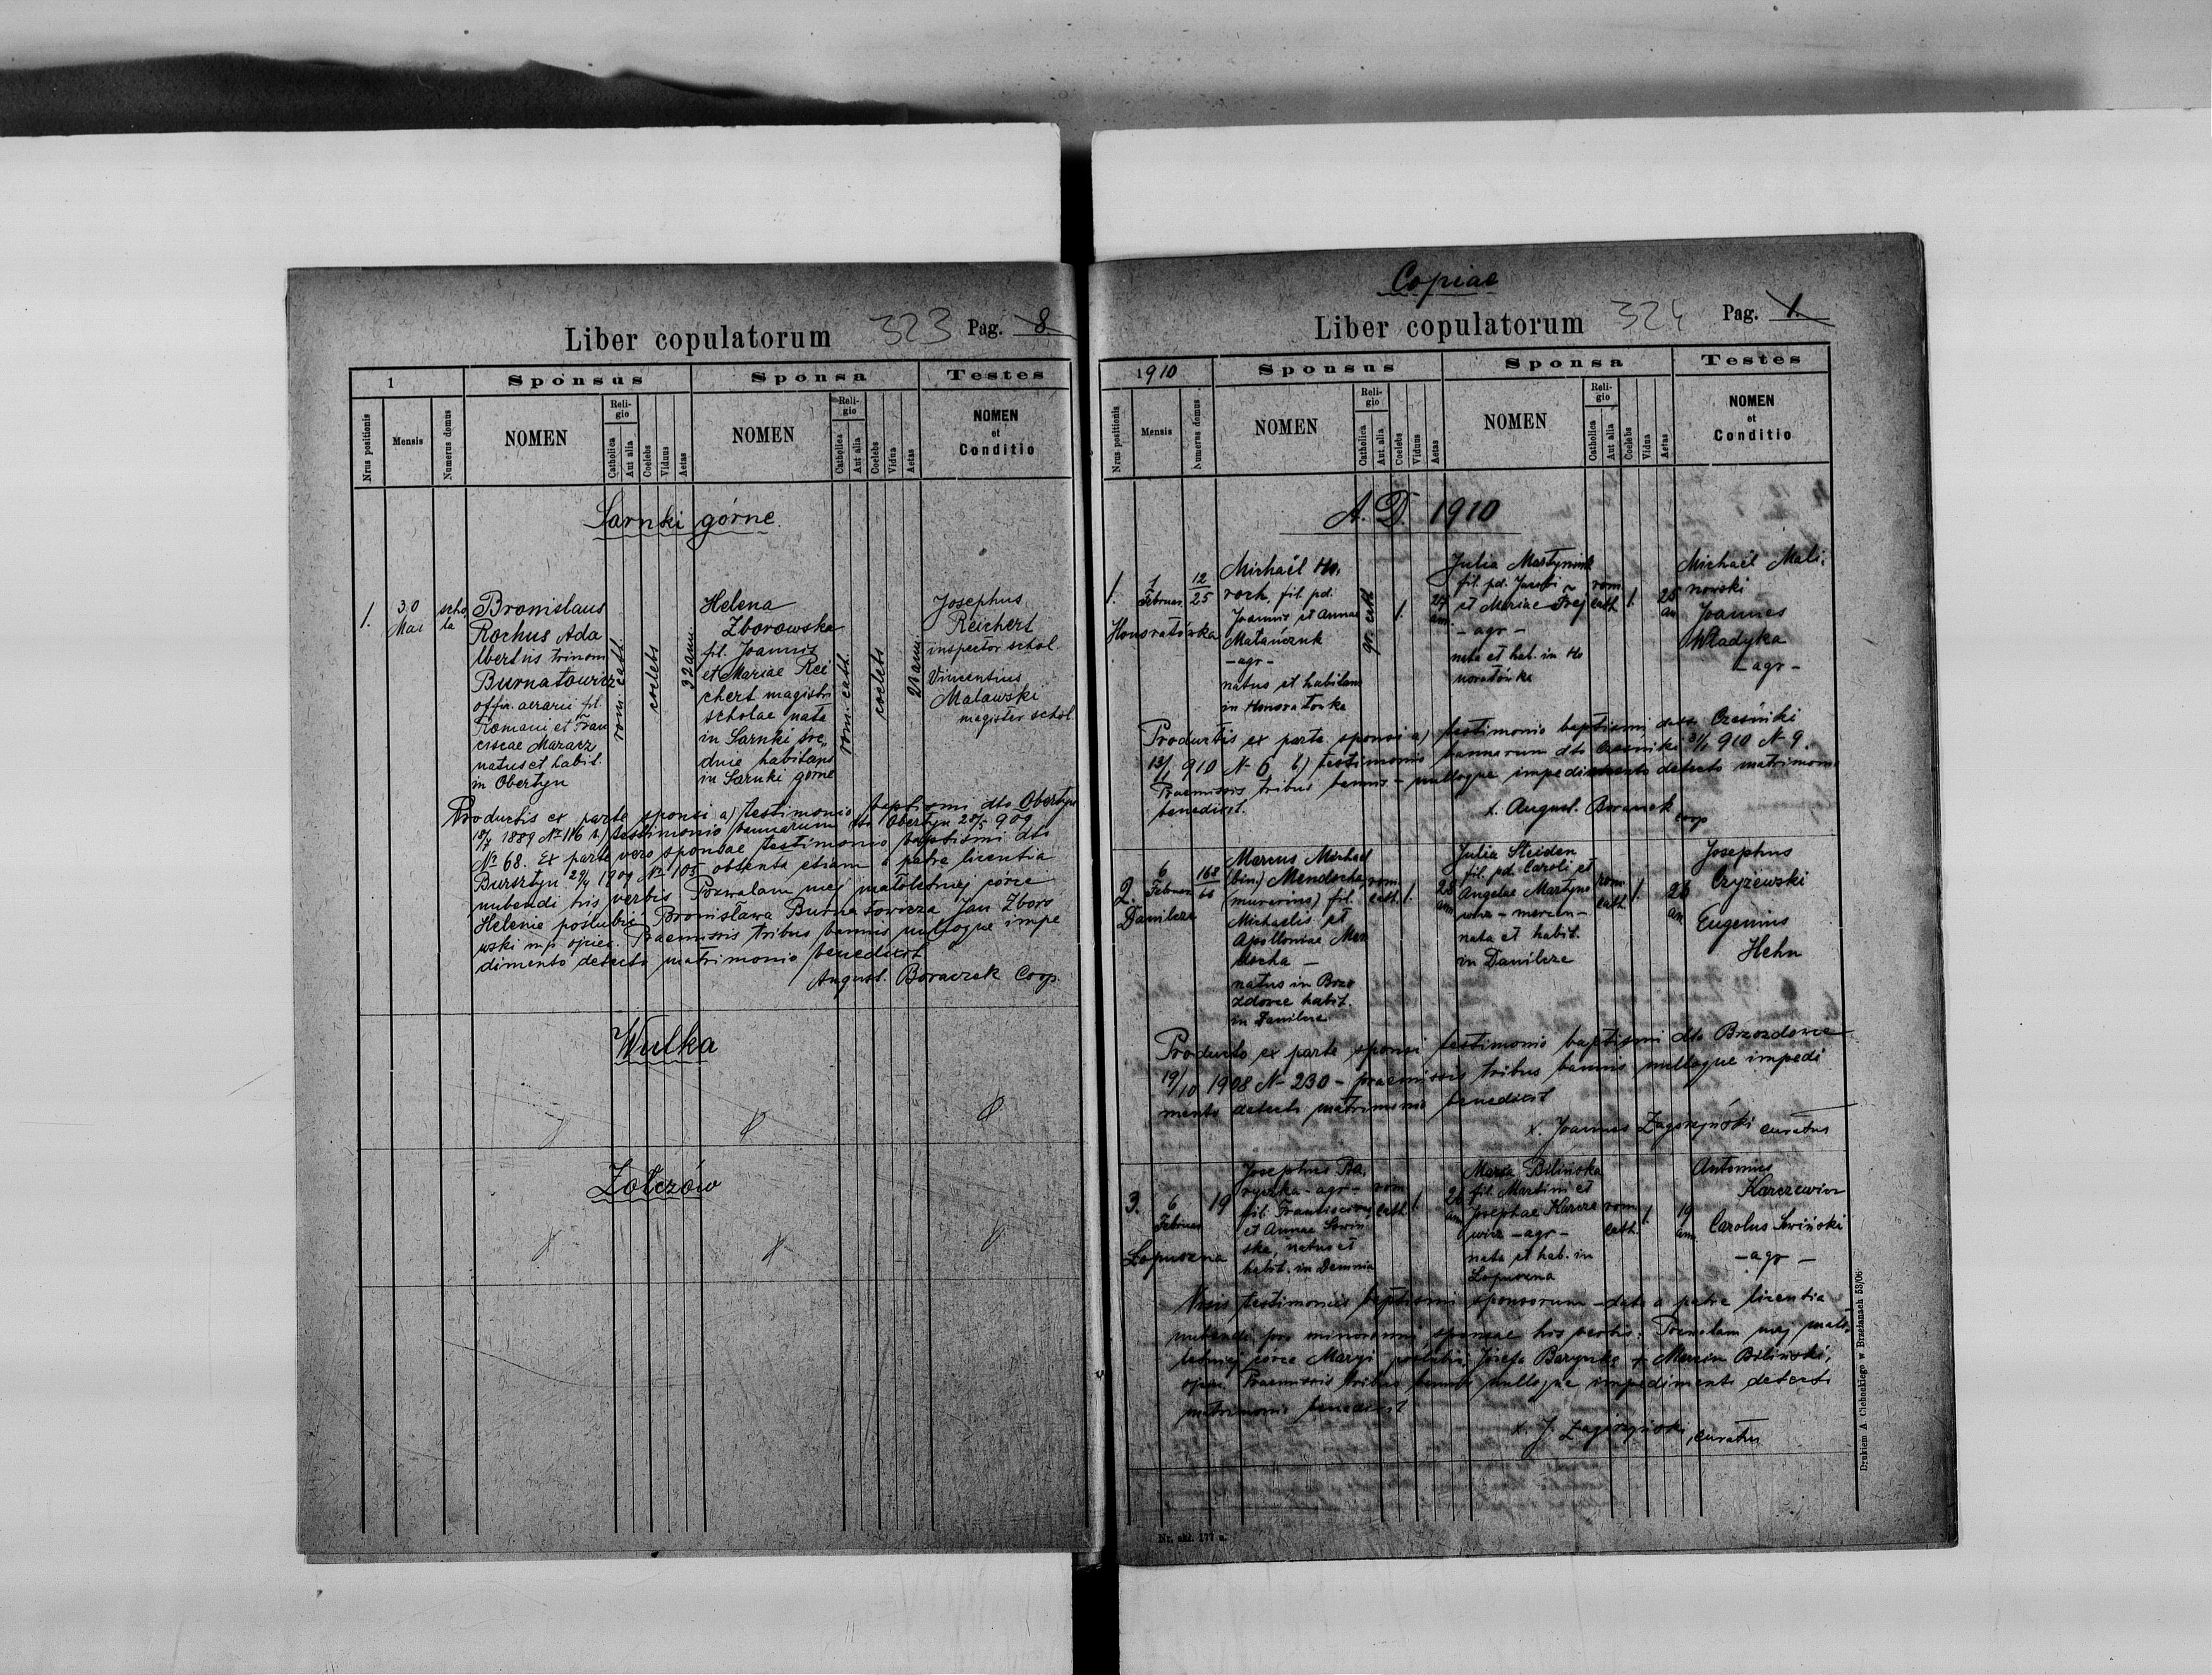 Liber copulatorum 323 Pag. 8
1 Sponsus Sponsa Testes
Nrus positionis Mensis Numerus domus NOMEN Religio Catholica Aut alia Coelebs Viduus Aetas NOMEN Religio Catholica Aut alia Coelebs Vidua Aetas NOMEN et Conditio
Sarnki górne
1. 30 Mai schola
Bronislaus
Rochus Ada
lbertus trinom
Burnatowicz
offic. aerarii fil.
Romani et Fran
ciscae Maracz
natus et habit.
in Obertyn
rom. cath.
coelebs
32 ann.
Helena
Zborowska
fil. Joannis
et Mariae Rei
chert magistri
scholae nata
in Sarnki śre„
dnie habitans
in Sarnki gorne
rom. cath.
coelebs
Josephus
Reichert
inspector schol
Vincentius
Malawski
magister schol.
Productis ex parte sponsi a) testimonio baptismi dto Obertyn
18/7 1889 No 116 b) testimonio bannorum dto Obertyn 28/5 909
No 68. Ex parte vero sponsae testimonio baptismi dto
Bursztyn 29/4 1909 No 105 obtenta etiam a patre licentia
nubendi his verbis Pozwalam mej małoletniej córce
Helenie poślubić Bronisława Burnatowicza Jan Zboro
wski mp ojciec. Praemissis tribus bannis nulloque impe
dimento detecto matrimonio benedixit
August. Boraczek Coop.
Wulka
Żołczów
Copiae
Liber copulatorum 324 Pag. 1
1910 Sponsus Sponsa Testes
Nrus positionis Mensis Numerus domus NOMEN Religio Catholica Aut alia Coelebs Viduus Aetas NOMEN Religio Catholica Aut alia Coelebs Vidua Aetas NOMEN et Conditio
A. D. 1910
1. 1 Februar. 12/25
Honoratówka
Michaël Ho,
roch, fil. pd.
Joannis et Annae
Matańczuk
- agr -
natus et habitans
in Honoratowka
gr. cath
1.
24 an.
Julia Martyniuk
fil. pd. Jacobi
et Mariae Frej
- agr -
nata et hab. in Ho
noratówka
rom. cath 1. 25 an
Michaël Mali,
nowski
Joannes
Władyka
- agr -
Productis ex parte sponsi a) testimonio baptismi dto Cześniki
13/1 910 No 6 b) testimonio bannorum dto Cześniki 31/1 910 No 9.
Praemissis tribus bannis - nulloque impedimento detecto matrimonio
benedixit.
x. August. Boraczek coop
2. 6 Februar. 168/66
Danilcze
Marcus Michael
(bin.) Mendocha
(murarius) fil.
Michaelis et
Apolloniae Men
docha -
natus in Brzo
zdowce habit.
in Danilcze
rom. cath. 1. 28 an
Julia Steiden
fil. pd. Caroli et
Angelae Martyno
wicz - mercen -
nata et habit.
in Danilcze
rom. cath. 1. 26 an
Josephus
Czyżewski
Eugenius
Hehn
Producto ex parte sponsi testimonio baptismi dto Brzozdowce
19/10 1908 No 230 - praemissis tribus bannis nulloque impedi
mento detecto matrimonio benedixit
x. Joannes Zagórzyński curatus
3. 6 Februar 19
Łopuszna
Josephus Ba,
ryczka - agr -
fil. Francisci
et Annae Sowiń
ska, natus et
habit. in Demnia
rom. cath. 1. 26 an
Maria Bilińska
fil. Martini et
Josephae Karcze
wicz - agr -
nata et hab. in
Łopuszna
rom. cath. 1. 19 an.
Antonius
Karczewicz
Carolus Sowiński
- agr -
Visis testimoniis baptismi sponsorum - dato a patre licentia
nubendi pro minorenni sponsae his verbis: Pozwalam mej mało„
letniej córce Maryi poślubić Józefa Baryczkę + Marcin Biliński,
ojciec. Praemissis tribus bannis nulloque impedimento detecto
matrimonio benedixit
x. J. Zagórzyński, curatus
Nr. skł. 177 a.
Drukiem A. Ciehockiego w Brzeżanach 53/06